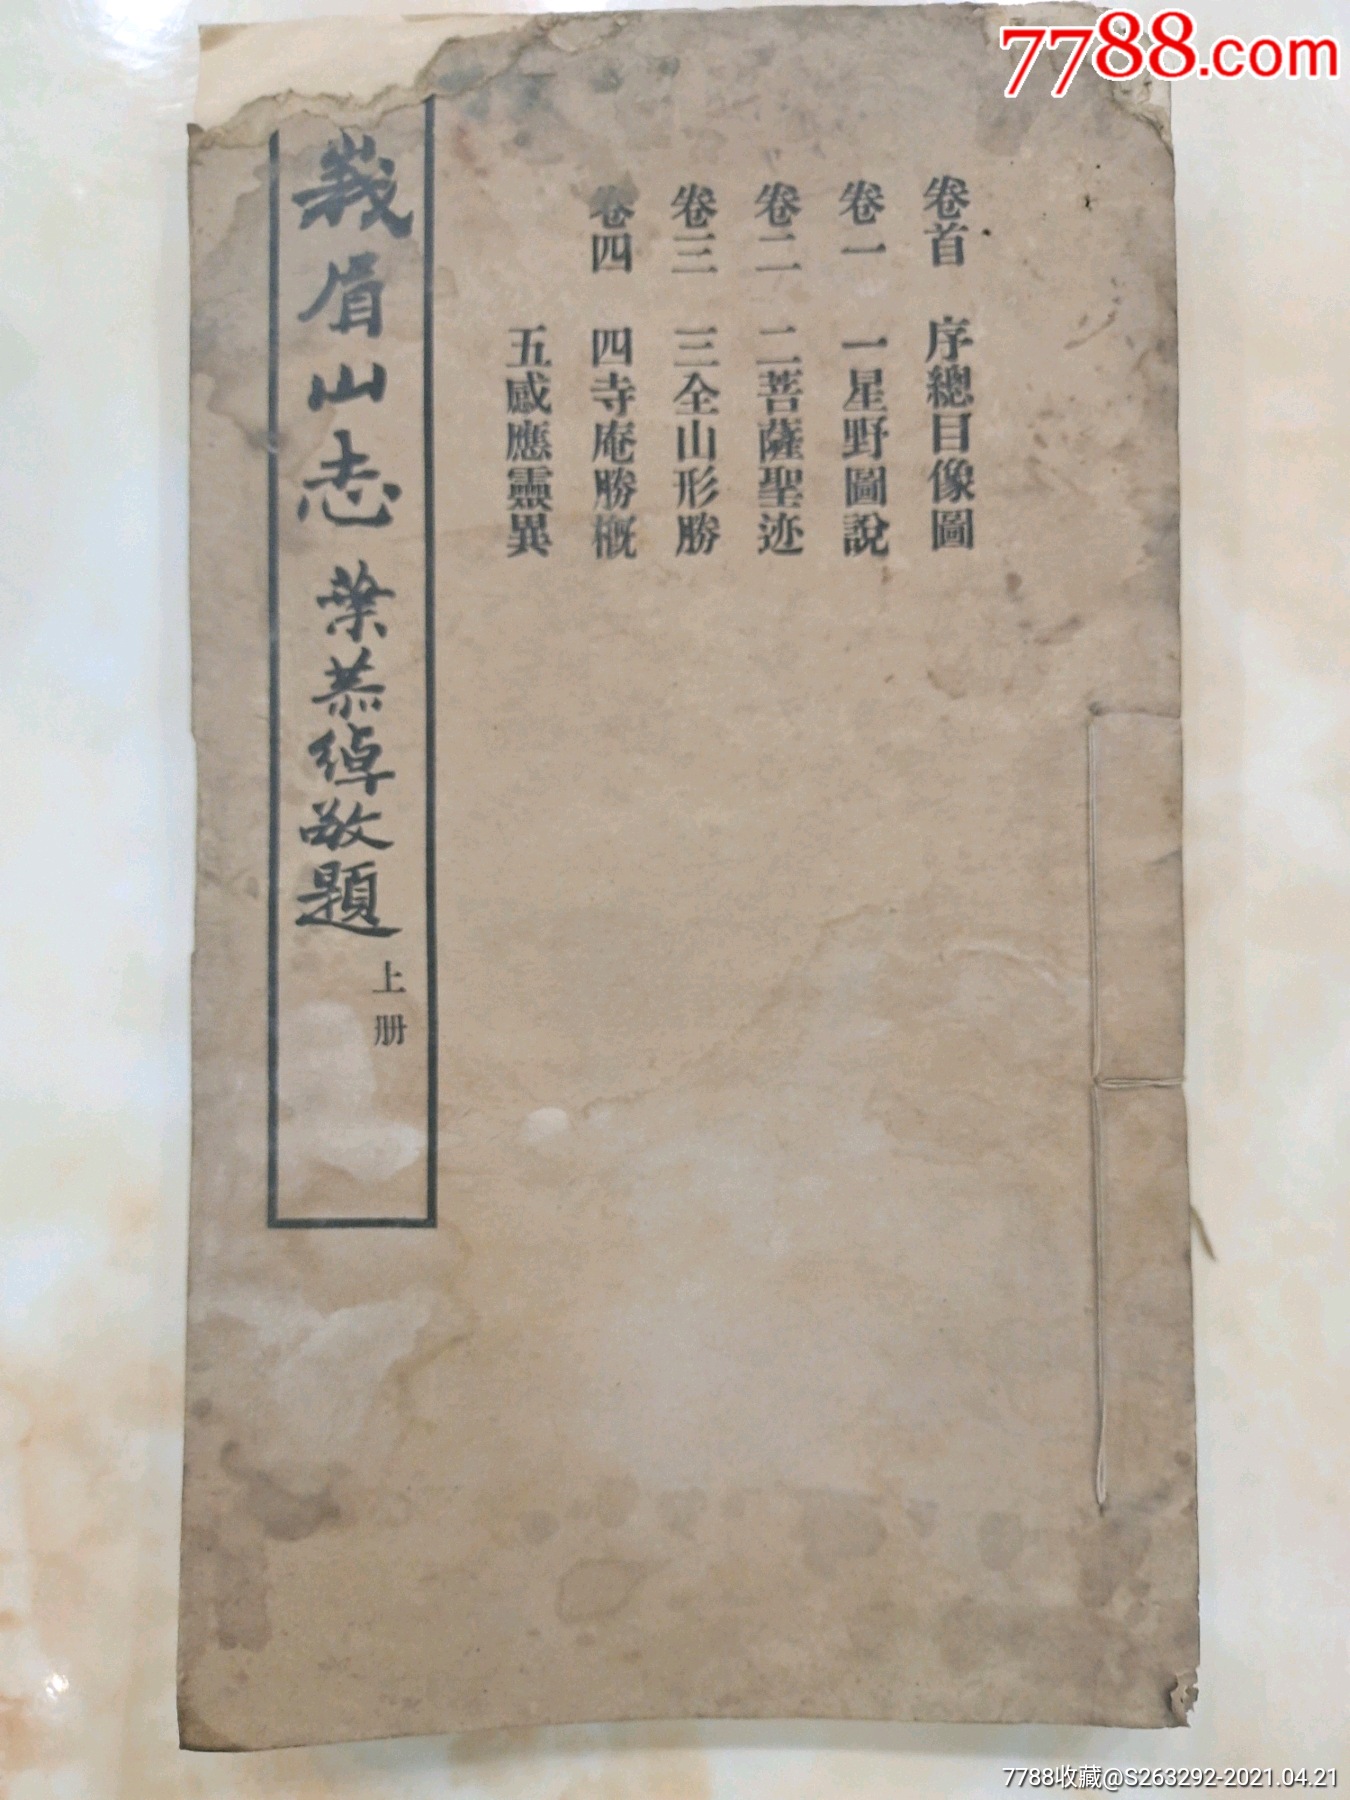 7788.com
卷首 序總目像圖
卷一 一星野圖說
卷二 二菩薩聖迹
卷三 三全山形勝
卷四 四寺庵勝概
五感應靈異
峩眉山志 葉恭綽敬題 上册
7788收藏@S263292-2021.04.21